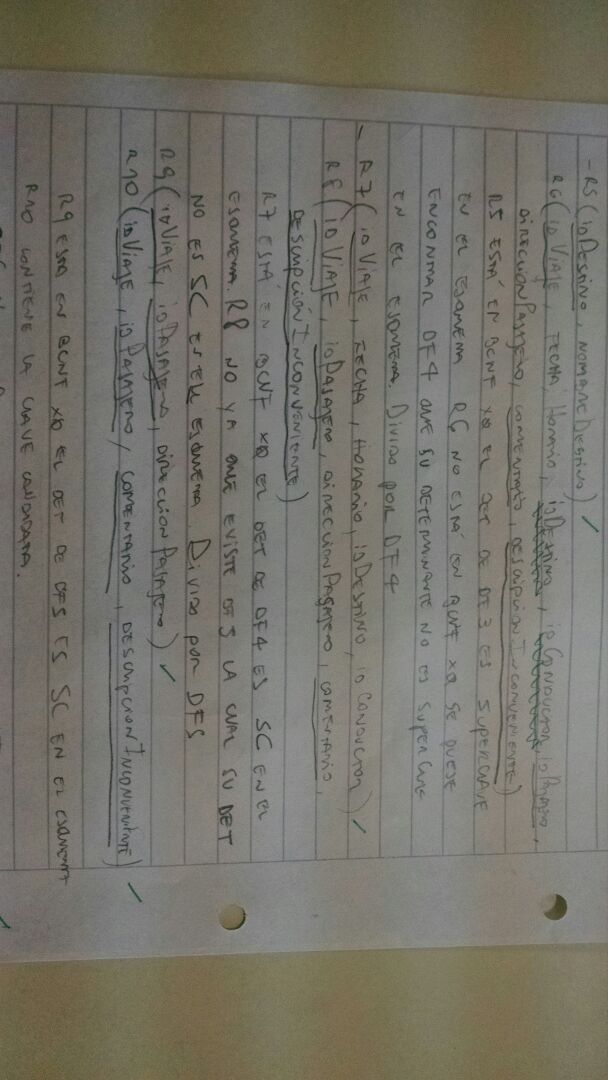 - R5 (idDestino, NOMBREDestino) ✓
R6 (idViaje, FECHA, Horario, idDestino, idConductor, idPasajero,
direcciónPasajero, comentario, descripciónInconveniente)
R5 ESTÁ EN BCNF xq EL DET DE DF3 ES SUPERCLAVE
EN EL ESQUEMA R6 NO ESTÁ EN BCNF xq SE PUEDE
ENCONTRAR DF4 QUE SU DETERMINANTE NO ES SUPERCLAVE
EN EL ESQUEMA. Divido por DF4
- R7 (idViaje, FECHA, HORARIO, idDESTINO, idCONDUCTOR) ✓
R8 (idViaje, idPasajero, direcciónPasajero, comentario,
DescripciónInconveniente)
R7 ESTÁ EN BCNF xq EL DET DE DF4 ES SC EN EL
ESQUEMA. R8 NO YA QUE EXISTE DF5 LA CUAL SU DET
NO ES SC ES EL ESQUEMA. Divido por DF5
R9 (idViaje, idPasajero, direcciónPasajero) ✓
R10 (idViaje, idPasajero, comentario, descripcionInconveniente) ✓
R9 ESTA EN BCNF xq EL DET DE DF5 ES SC EN EL ESQUEMA
R10 CONTIENE LA CLAVE CANDIDATA.